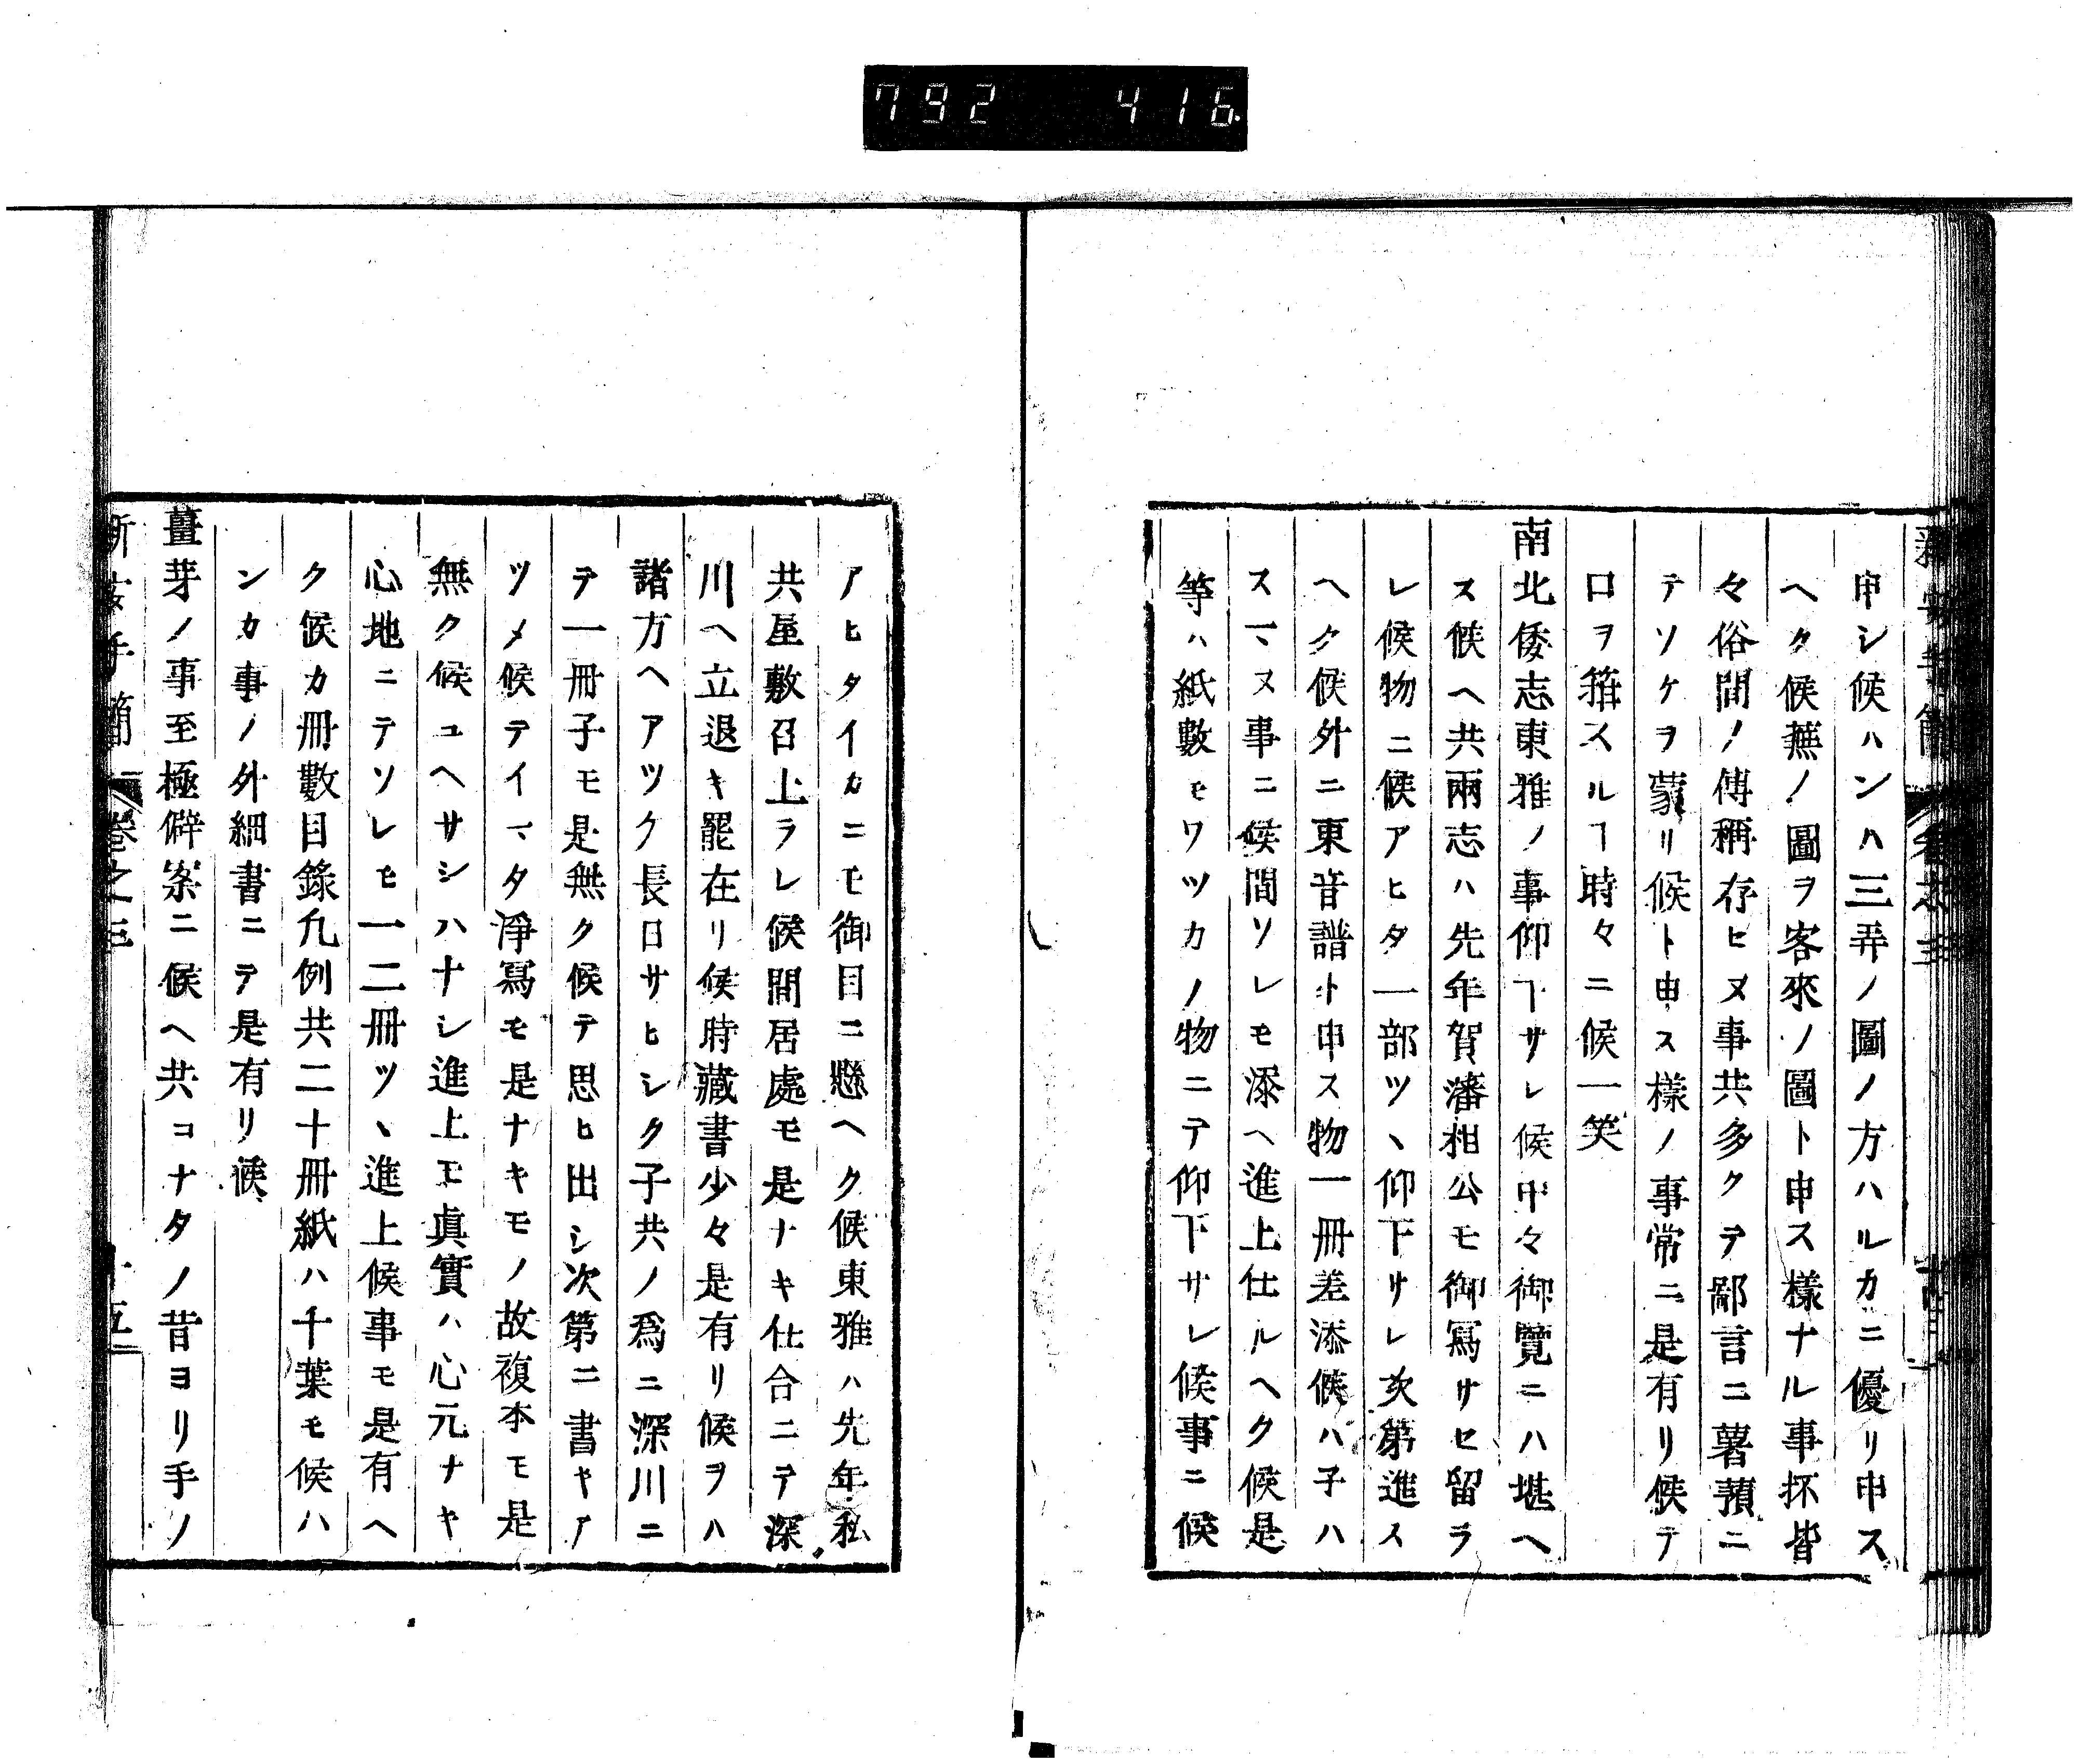 792 416
申シ候ハンハ三弄ノ圖ノ方ハルカニ優リ申ス
ヘク候蕪ノ圖ヲ客來ノ圖ト申ス樣ナル事抔皆
々俗間ノ傳稱存ヒヌ事共多クテ鄙言ニ薯蕷ニ
テソケヲ蒙リ候ト申ス樣ノ事常ニ是有リ候テ
口ヲ箝スルヿ時々ニ候一笑
南北倭志東雅ノ事仰下サレ候中々御覽ニハ堪ヘ
ス候ヘ共兩志ハ先年賀瀋相公モ御寫サセ留ラ
レ候物ニ候アヒタ一部ツヽ仰下サレ次第進ス
ヘク候外ニ東音譜ト申ス物一冊差添候ハ子ハ
スマヌ事ニ候間ソレモ添ヘ進上仕ルヘク候是
等ハ紙數モワツカノ物ニテ仰下サレ候事ニ候
アヒタイカニモ御目ニ懸ヘク候東雅ハ先年私
共屋敷召上ラレ候間居處モ是ナキ仕合ニテ深
川ヘ立退キ罷在リ候時藏書少々是有リ候ヲハ
諸方ヘアツク長日サヒシク子共ノ爲ニ深川ニ
テ一冊子モ是無ク候テ思ヒ出シ次第ニ書キア
ツメ候テイマタ淨寫モ是ナキモノ故複本モ是
無ク候ユヘサシハナシ進上モ眞實ハ心元ナキ
心地ニテソレモ一二冊ツヽ進上候事モ是有ヘ
ク候カ冊數目錄凡例共二十冊紙ハ千葉モ候ハ
ンカ事ノ外細書ニテ是有リ候
薑芽ノ事至極僻案ニ候ヘ共コナタノ昔ヨリ手ノ
新安手簡 卷之三 十五